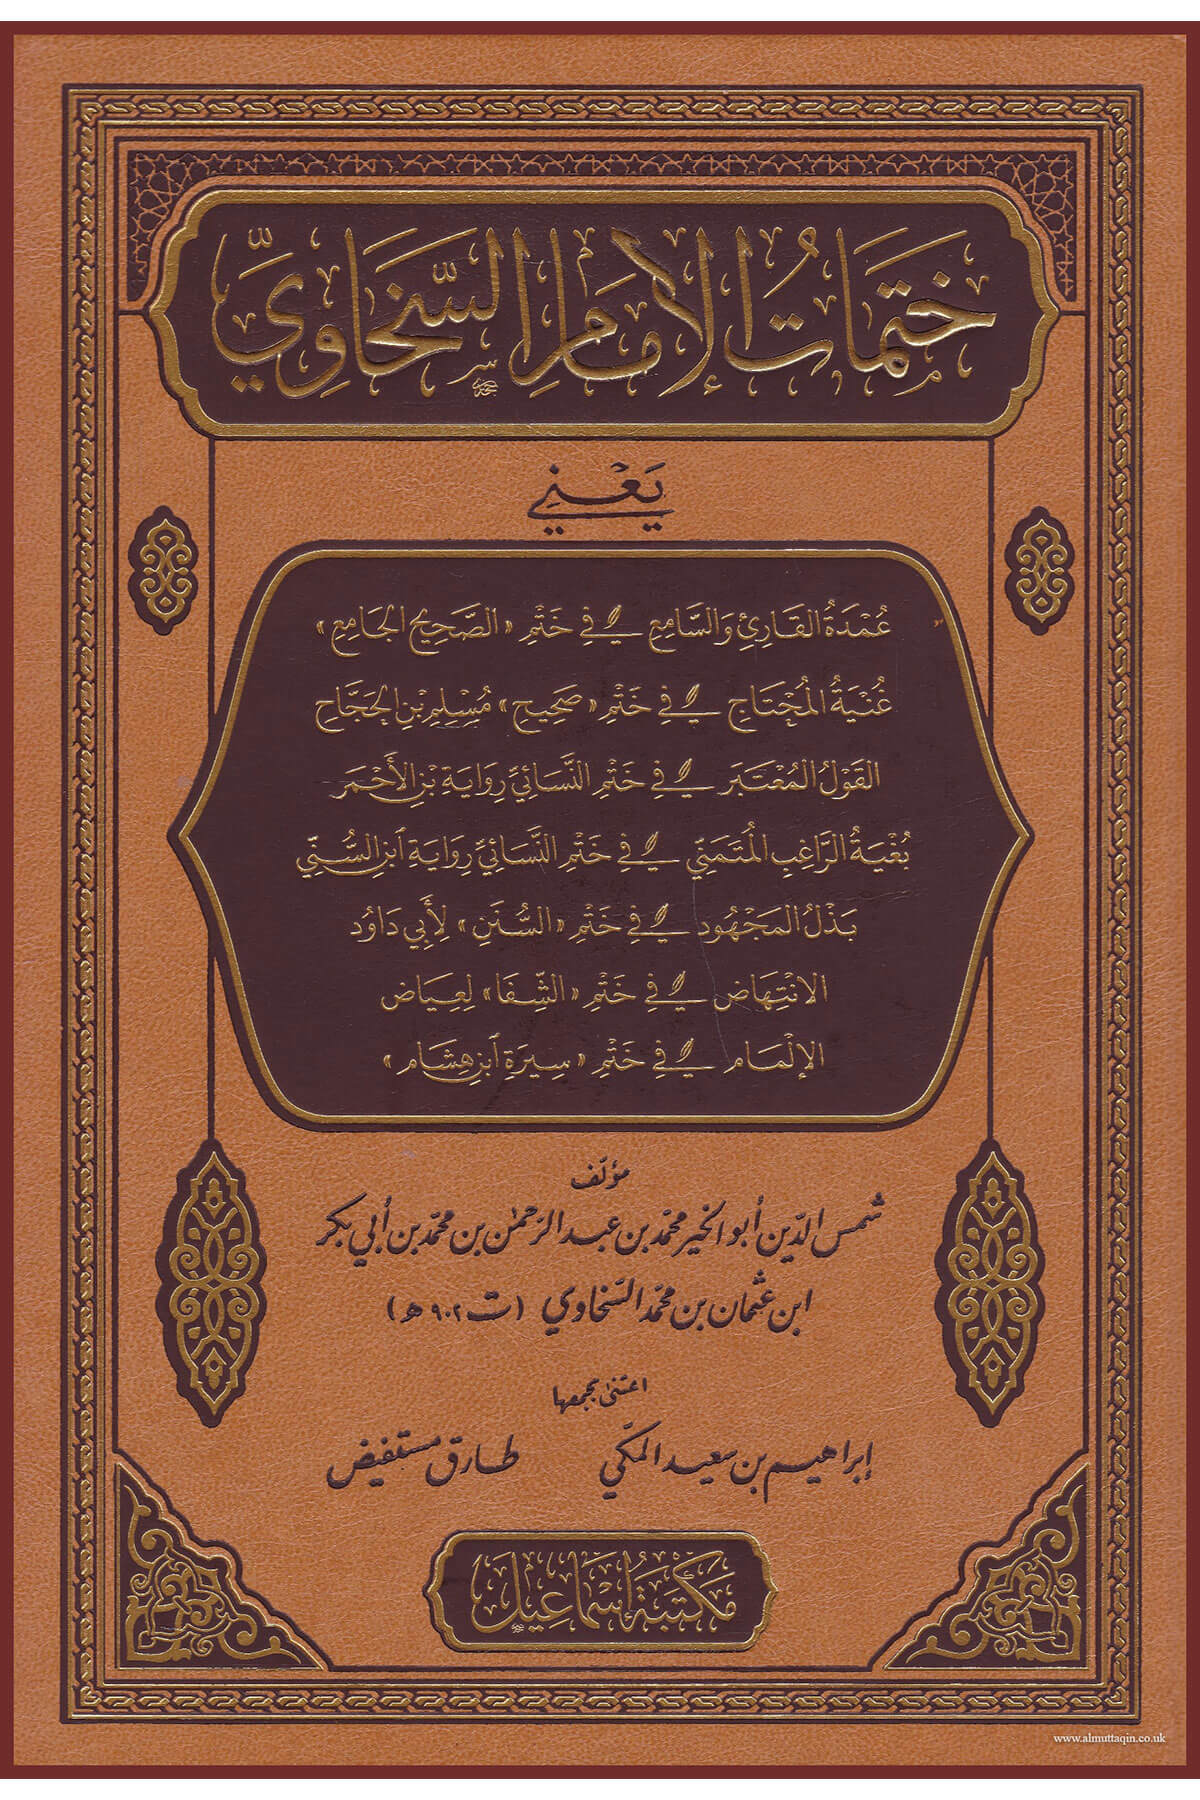 خَتَمَاتُ الإِمَامِ السَّخَاوِيِّ
يَعْنِي
عُمْدَةُ القَارِئِ وَالسَّامِعِ فِي خَتْمِ «الصَّحِيحِ الجَامِعِ»
غُنْيَةُ المُحْتَاجِ فِي خَتْمِ «صَحِيحِ» مُسْلِمِ بْنِ الحَجَّاجِ
القَوْلُ المُعْتَبَر فِي خَتْمِ النَّسَائِيِّ رِوَايَةِ بْنِ الأَحْمَر
بُغْيَةُ الرَّاغِبِ المُتَمَنِّي فِي خَتْمِ النَّسَائِيِّ رِوَايَةِ ابْنِ السُّنِّي
بَذْلُ المَجْهُودِ فِي خَتْمِ «السُّنَنِ» لِأَبِي دَاوُد
الانْتِهَاض فِي خَتْمِ «الشِّفَا» لِعِيَاض
الإِلْمَام فِي خَتْمِ «سِيرَةِ ابْنِ هِشَام»
مؤلّف
شمس الدّين أبو الخير محمّد بن عبد الرّحمٰن بن محمّد بن أبي بكر
ابن عثمان بن محمّد السّخاوي (ت ٩٠٢ هـ)
اعتنىٰ بجمعها
إبراهيم بن سعيد المكّي طارق مستفيض
مَكْتَبَةُ إِسْمَاعِيل
www.almuttaqin.co.uk